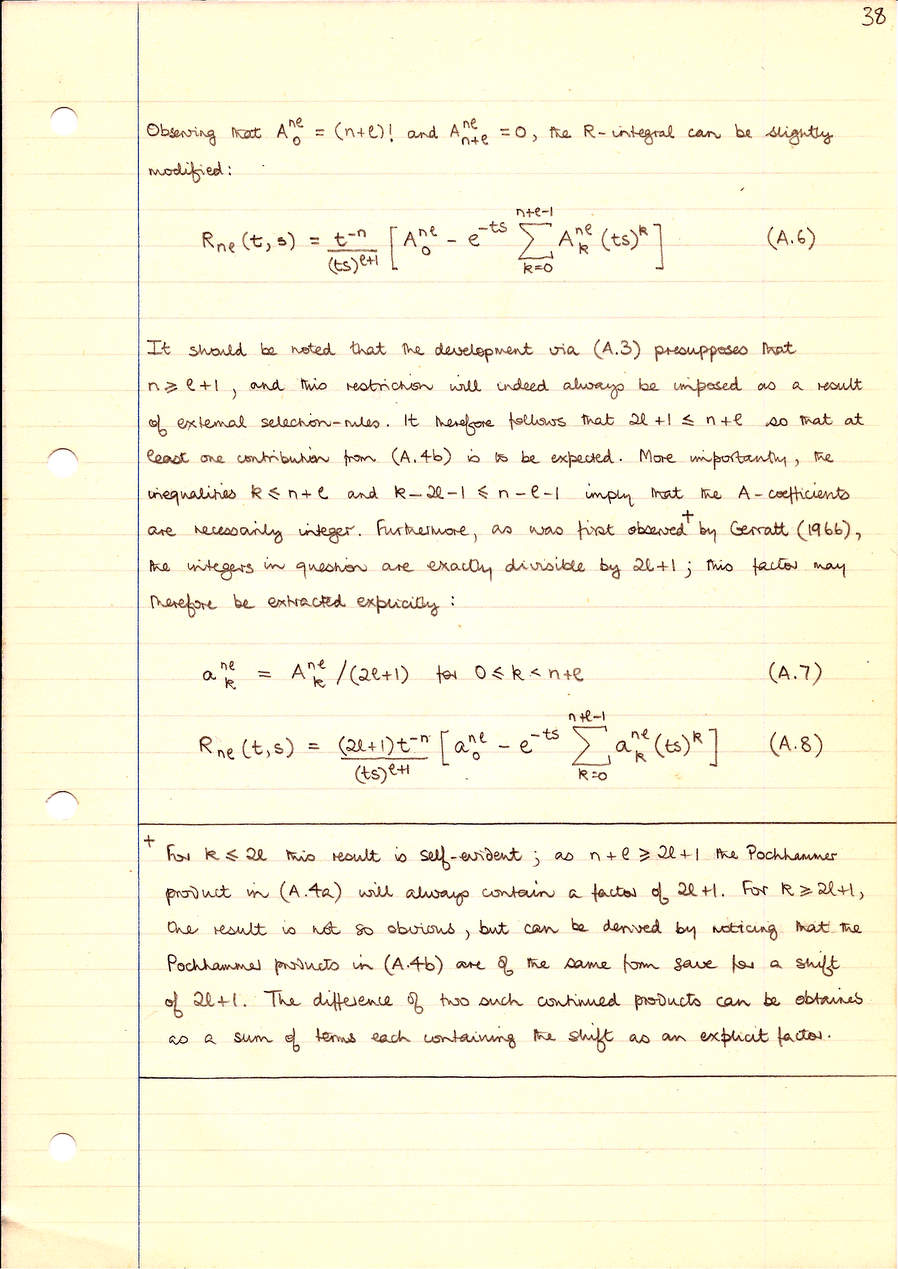 38
Observing that A₀ⁿˡ = (n+ℓ)! and Aₙ₊ℓⁿˡ = 0, the R-integral can be slightly
modified:
Rₙℓ(t,s) = t⁻ⁿ/(ts)^(ℓ+1) [A₀^(nℓ) − e^(−ts) ∑_(k=0)^(n+ℓ−1) A_k^(nℓ) (ts)^k] (A.6)
It should be noted that the development via (A.3) presupposes that
n ≥ ℓ+1, and this restriction will indeed always be imposed as a result
of external selection-rules. It therefore follows that 2ℓ+1 ≤ n+ℓ so that at
least one contribution from (A.4b) is to be expected. More importantly, the
inequalities k ≤ n+ℓ and k−2ℓ−1 ≤ n−ℓ−1 imply that the A-coefficients
are necessarily integer. Furthermore, as was first observed† by Gerratt (1966),
the integers in question are exactly divisible by 2ℓ+1; this factor may
therefore be extracted explicitly:
a_k^(nℓ) = A_k^(nℓ)/(2ℓ+1) for 0 ≤ k < n+ℓ (A.7)
Rₙℓ(t,s) = (2ℓ+1)t⁻ⁿ/(ts)^(ℓ+1) [a₀^(nℓ) − e^(−ts) ∑_(k=0)^(n+ℓ−1) a_k^(nℓ) (ts)^k] (A.8)
† For k ≤ 2ℓ this result is self-evident; as n+ℓ ≥ 2ℓ+1 the Pochhammer
product in (A.4a) will always contain a factor of 2ℓ+1. For k ≥ 2ℓ+1,
the result is not so obvious, but can be derived by noticing that the
Pochhammer products in (A.4b) are of the same form save for a shift
of 2ℓ+1. The difference of two such continued products can be obtained
as a sum of terms each containing the shift as an explicit factor.